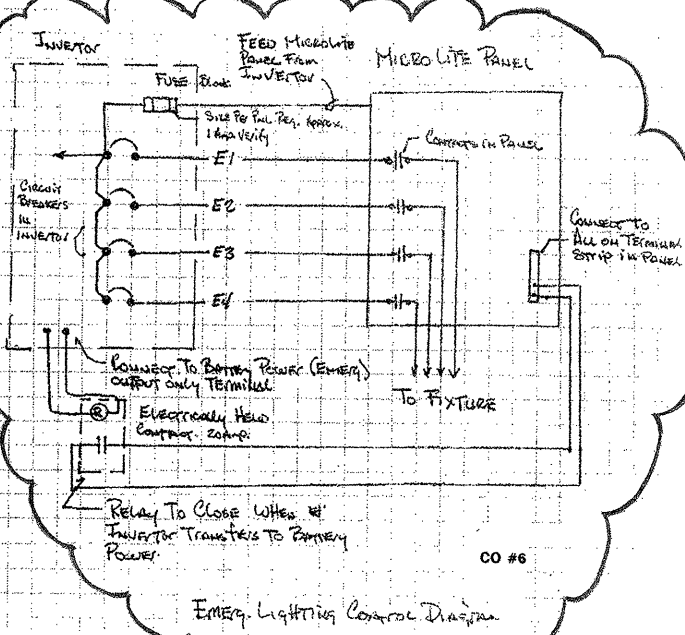 INVERTOR
FEED MICROLITE
PANEL FROM
INVERTOR
MICRO LITE PANEL
FUSE Block
SIZE PER PNL. REQ. APPROX.
1 AMP VERIFY
CONTACTS IN PANEL
E1
CIRCUIT
BREAKERS
IN
INVERTOR
E2
CONNECT TO
ALL ON TERMINAL
STRIP IN PANEL
E3
E4
CONNECT TO BATTERY POWER (EMERG)
OUTPUT ONLY TERMINAL
TO FIXTURE
R
ELECTRICALLY HELD
CONTACT. 20AMP.
RELAY TO CLOSE WHEN
INVERTOR TRANSFERS TO BATTERY
POWER.
CO #6
EMERG. LIGHTING CONTROL DIAGRAM